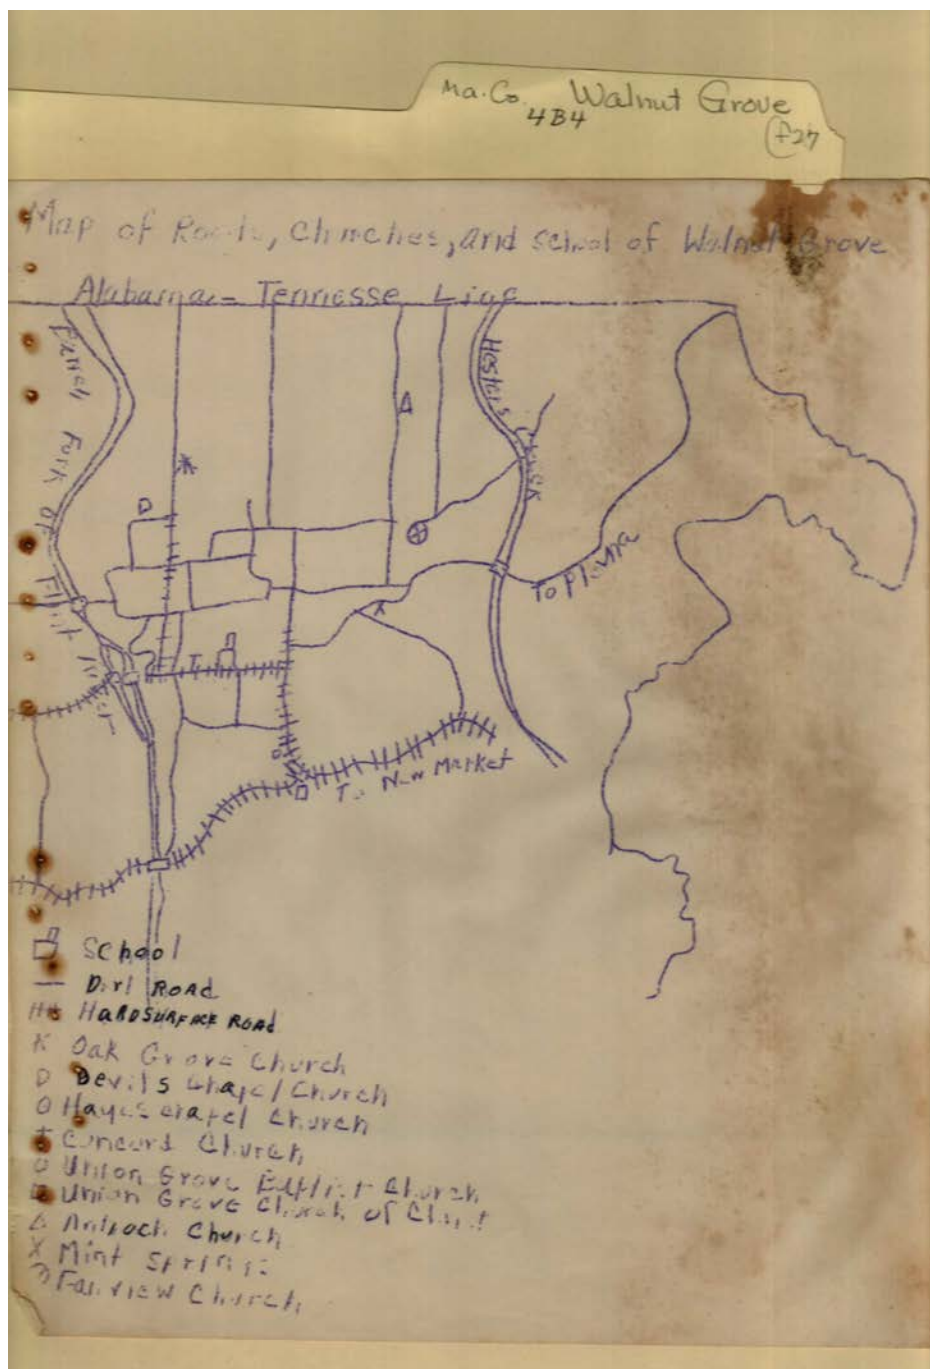 Ma. Co. Walnut Grove
4B4
f27
Map of Roads, Churches, and school of Walnut Grove
Alabama - Tennesse Line
Fork Of Flint River
Hesters
To Plevna
To New Market
School
Dirt ROAD
HARDSURFACE ROAD
Oak Grove Church
Devils Chapel Church
Hayes Chapel Church
Concord Church
Union Grove Baptist Church
Union Grove Church of Christ
Antioch Church
Mint Springs
Fairview Church